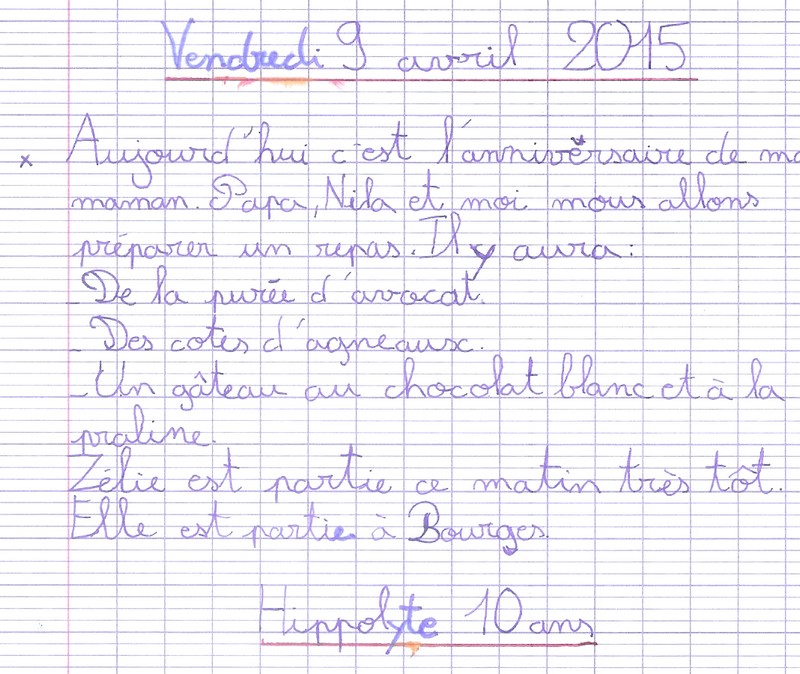 Vendredi 9 avril 2015
x Aujourd'hui c'est l'annivérsaire de ma
maman. Papa, Nila et moi nous allons
préparer un repas. Il y aura:
_De la purée d'avocat.
_Des cotes d'agneaux.
_Un gâteau au chocolat blanc et à la
praline.
Zélie est partie ce matin très tôt.
Elle est partie à Bourges.
Hippolyte 10 ans